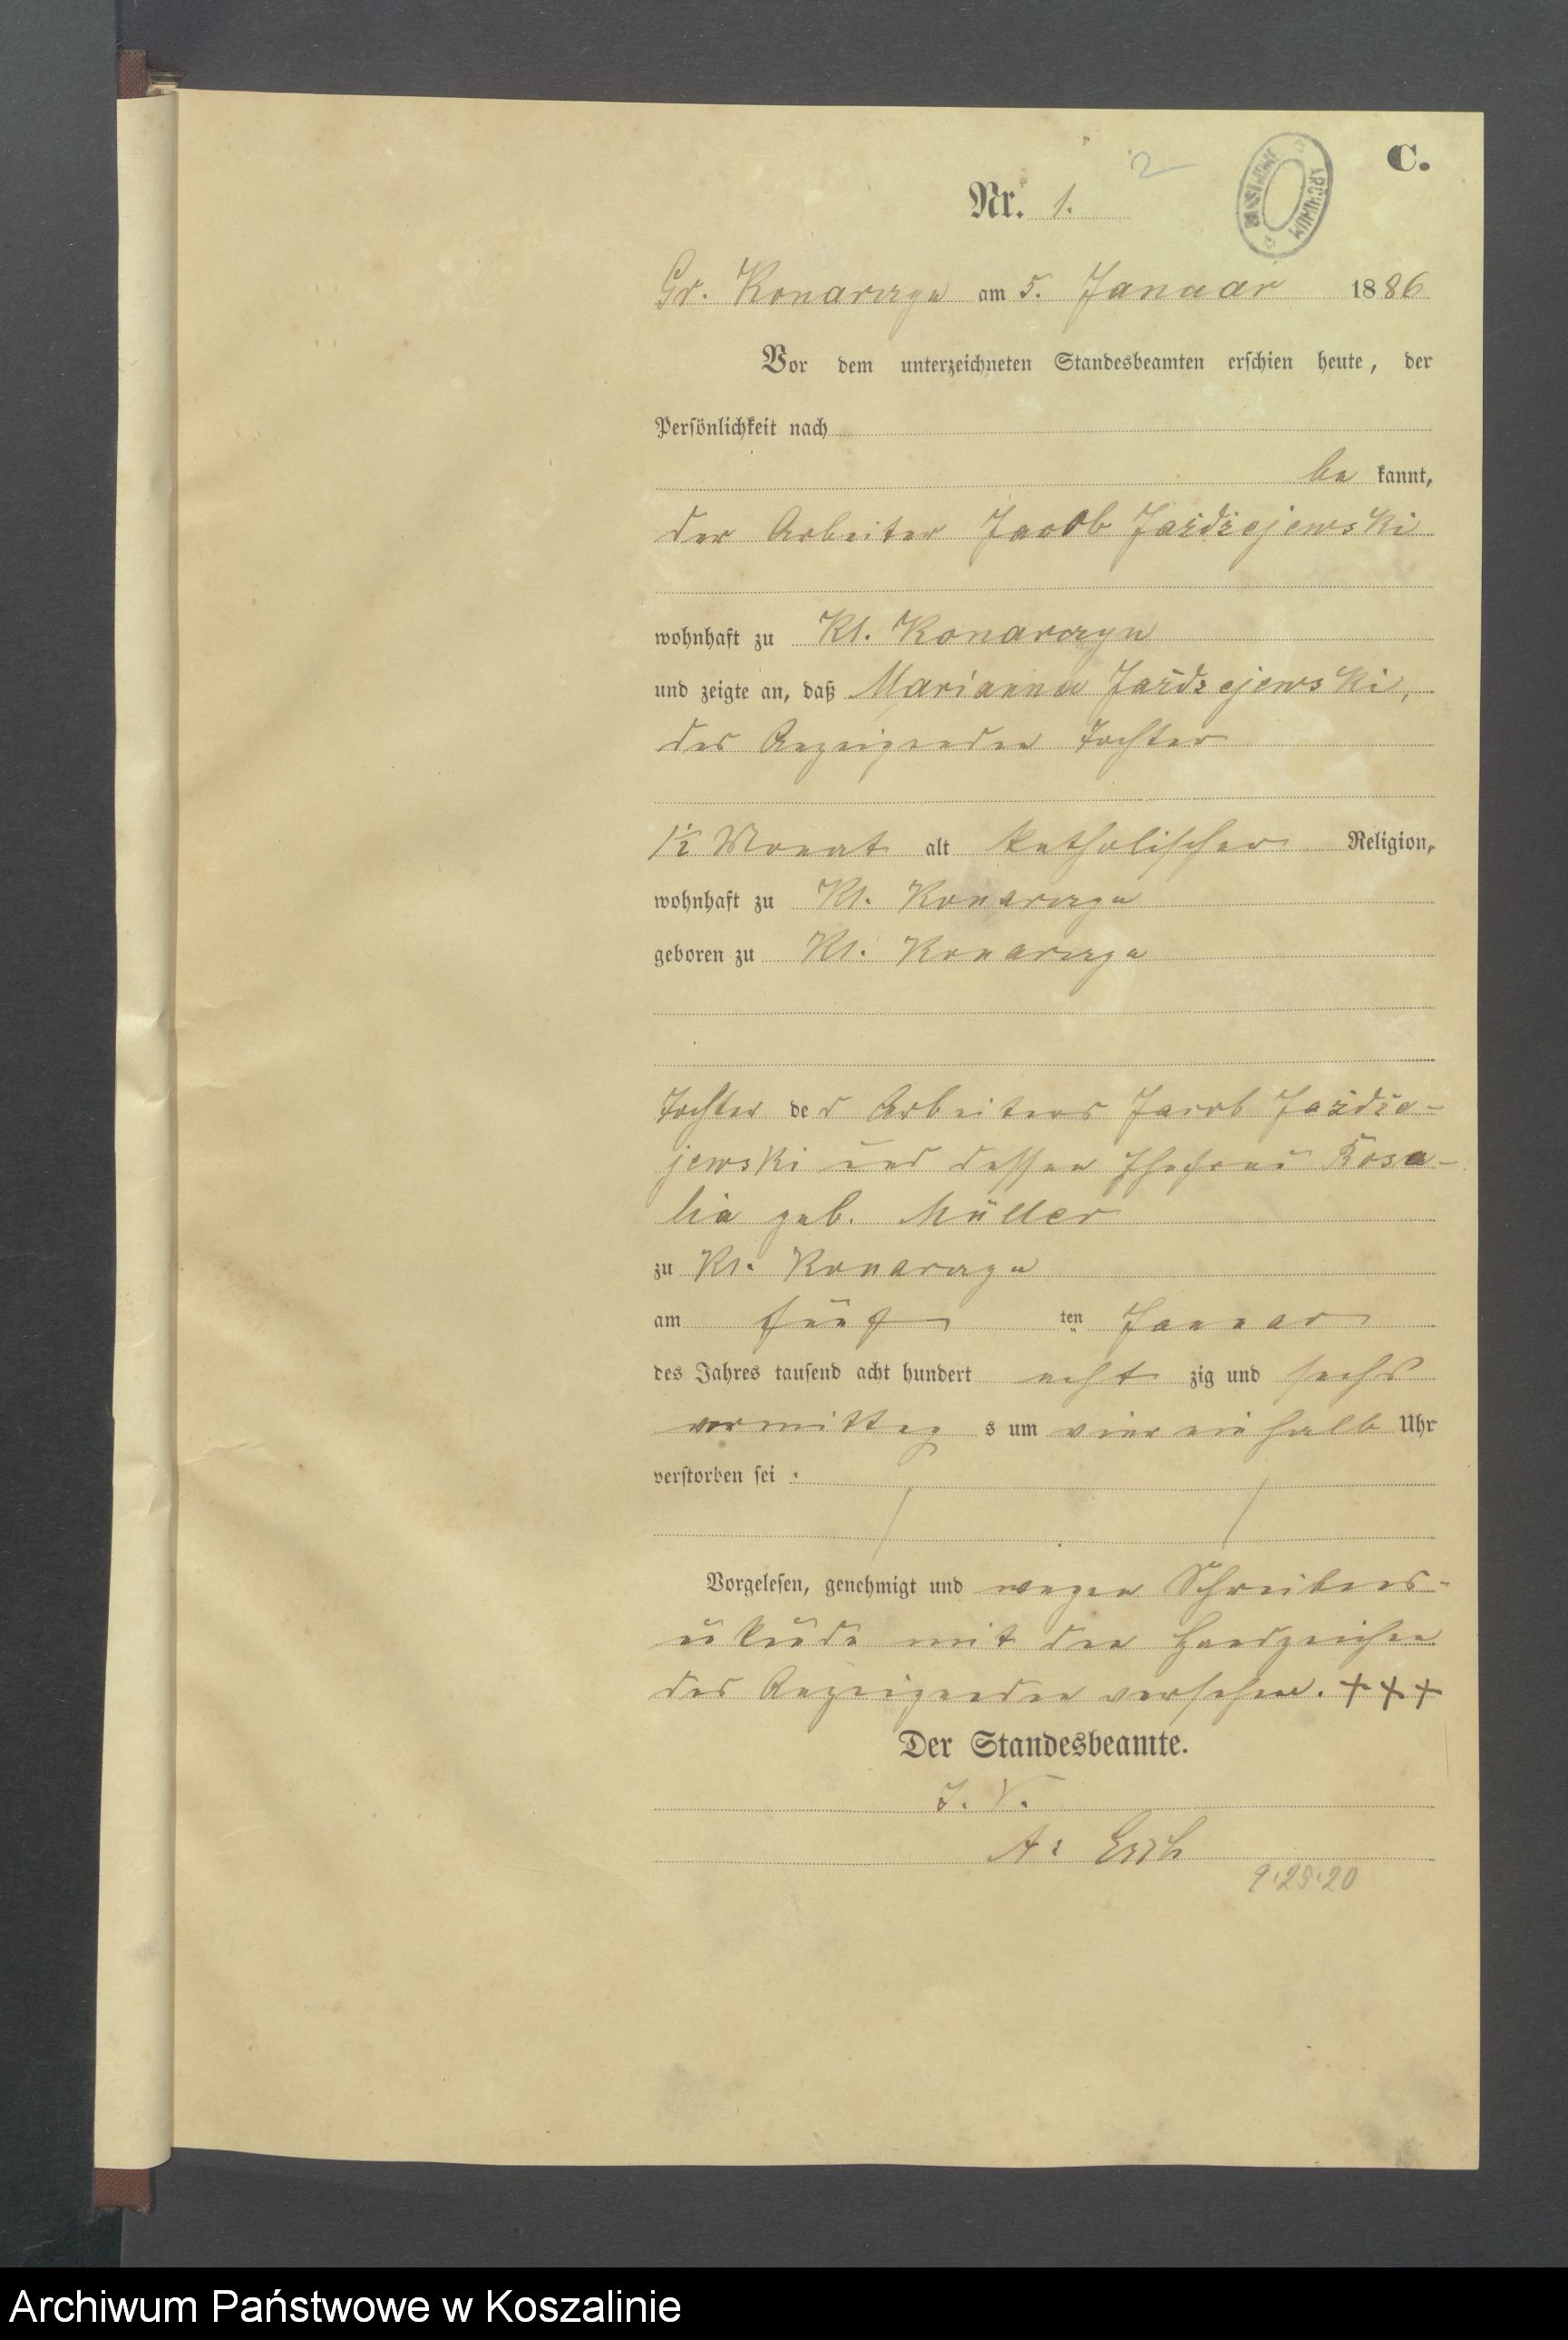 C.
2
ARCHIWUM PAŃSTWOWE
Nr. 1.
Gr. Konarczyn am 5. Januar 1886
Vor dem unterzeichneten Standesbeamten erschien heute, der
Persönlichkeit nach
be kannt,
der Arbeiter Jacob Jażdżejewski
wohnhaft zu Kl. Konarczyn
und zeigte an, daß Marianna Jażdzejewski,
des Anzeigenden Tochter
1½ Monat alt katholischer Religion,
wohnhaft zu Kl. Konarczyn
geboren zu Kl. Konarczyn
Tochter des Arbeiters Jacob Jażdże-
jewski und dessen Ehefrau Rosa-
lia geb. Müller
zu Kl. Konarczyn
am fünf ten Januar
des Jahres tausend acht hundert acht zig und sechs
vormittag s um vier ein halb Uhr
verstorben sei .
Vorgelesen, genehmigt und wegen Schreibens-
unkunde mit den Handzeichen
des Anzeigenden versehen. + + +
Der Standesbeamte.
J. V.
A:
9.25.20
Archiwum Państwowe w Koszalinie